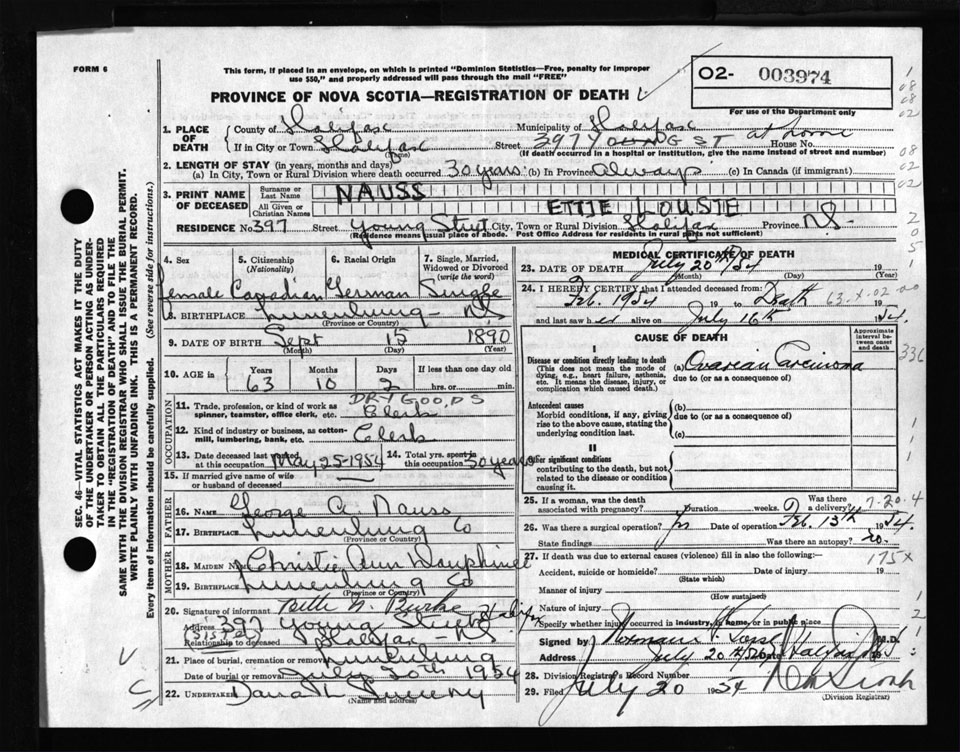 FORM 6
This form, if placed in an envelope, on which is printed "Dominion Statistics—Free, penalty for improper
use $50," and properly addressed will pass through the mail "FREE"
O2- 003974
PROVINCE OF NOVA SCOTIA—REGISTRATION OF DEATH
For use of the Department only
1. PLACE OF DEATH
County of Halifax Municipality of Halifax
If in City or Town Halifax Street 397 YOUNG ST at home House No.
(Name) (If death occurred in a hospital or institution, give the name instead of street and number)
2. LENGTH OF STAY (in years, months and days)
(a) In City, Town or Rural Division where death occurred 30 years (b) In Province Always (c) In Canada (if immigrant)
3. PRINT NAME OF DECEASED
Surname or Last Name NAUSS
All Given or Christian Names ETTIE LOUSIE
RESIDENCE No 397 Street Young Street City, Town or Rural Division Halifax Province NS-
(Residence means usual place of abode. Post Office Address for residents in rural parts not sufficient)
4. Sex 5. Citizenship (Nationality) 6. Racial Origin 7. Single, Married, Widowed or Divorced (write the word)
female Canadian German Single
8. BIRTHPLACE Lunenburg - NS
(Province or Country)
9. DATE OF BIRTH Sept 15 1890
(Month) (Day) (Year)
10. AGE Years Months Days If less than one day old
63 10 2 hrs. or min.
OCCUPATION
11. Trade, profession, or kind of work as spinner, teamster, office clerk, etc. DRY GOODS Clerk
12. Kind of industry or business, as cotton-mill, lumbering, bank, etc. Clerk
13. Date deceased last worked at this occupation May 25-1954 14. Total yrs. spent in this occupation 30 years
15. If married give name of wife or husband of deceased
FATHER
16. Name George A. Nauss
17. Birthplace Lunenburg Co
(Province or Country)
MOTHER
18. Maiden Name Christie Ann Dauphinee
19. Birthplace Lunenburg Co
(Province or Country)
20. Signature of informant Burke
Address 397 Young Street Halifax
(SISTER) Halifax - NS
Relationship to deceased
21. Place of burial, cremation or removal Lunenburg
Date of burial or removal July 20th 1954
22. Undertaker Dana L Sweeny
(Name and address)
MEDICAL CERTIFICATE OF DEATH
23. DATE OF DEATH July 20th/54 19
(Month) (Day)
24. I HEREBY CERTIFY that I attended deceased from:
Feb. 1954 19 to Death 19
63-X-02-00
and last saw her alive on July 16th 1954.
CAUSE OF DEATH
Approximate interval between onset and death
I
Disease or condition directly leading to death
(This does not mean the mode of dying, e.g., heart failure, asthenia, etc. It means the disease, injury, or complication which caused death.)
(a) Ovarian Carcinoma
due to (or as a consequence of)
Antecedent causes
Morbid conditions, if any, giving rise to the above cause, stating the underlying condition last.
(b)
due to (or as a consequence of)
(c)
II
Other significant conditions
contributing to the death, but not related to the disease or condition causing it.
25. If a woman, was the death associated with pregnancy? Duration weeks. Was there a delivery?
7-20.4
26. Was there a surgical operation? yes Date of operation Feb. 13th 1954.
State findings Was there an autopsy? no.
27. If death was due to external causes (violence) fill in also the following:—
175X
Accident, suicide or homicide? Date of injury 19
(State which)
Manner of injury
(How sustained)
Nature of injury
Specify whether injury occurred in industry, in home, or in public place
Signed by M.D.
Address July 20th Date Halifax
28. Division Registrar's Record Number
29. Filed July 20 1954
(Division Registrar)
SEC. 46—VITAL STATISTICS ACT MAKES IT THE DUTY
OF THE UNDERTAKER OR PERSON ACTING AS UNDER-
TAKER TO OBTAIN ALL THE PARTICULARS REQUIRED
IN THE "REGISTRATION OF DEATH" AND TO FILE THE
SAME WITH THE DIVISION REGISTRAR WHO SHALL ISSUE THE BURIAL PERMIT.
WRITE PLAINLY WITH UNFADING INK. THIS IS A PERMANENT RECORD.
Every item of information should be carefully supplied. (See reverse side for instructions.)
1
08
08
02
08
02
2
0
5
336
1
1
1
1
2